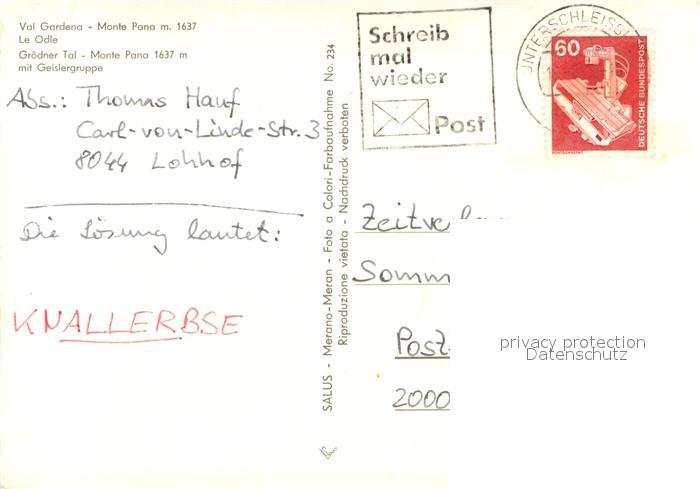 Val Gardena - Monte Pana m. 1637
Le Odle
Grödner Tal - Monte Pana 1637 m
mit Geislergruppe
Abs.: Thomas Hauf
Carl-von-Linde-Str. 3
8044 Lohhof
Die Lösung lautet:
KNALLERBSE
SALUS - Merano-Meran - Foto a Colori-Farbaufnahme No. 234
Riproduzione vietata - Nachdruck verboten
Schreib
mal
wieder
Post
UNTERSCHLEISS
60
DEUTSCHE BUNDESPOST
Zeitve
Somm
Post
2000
privacy protection
Datenschutz